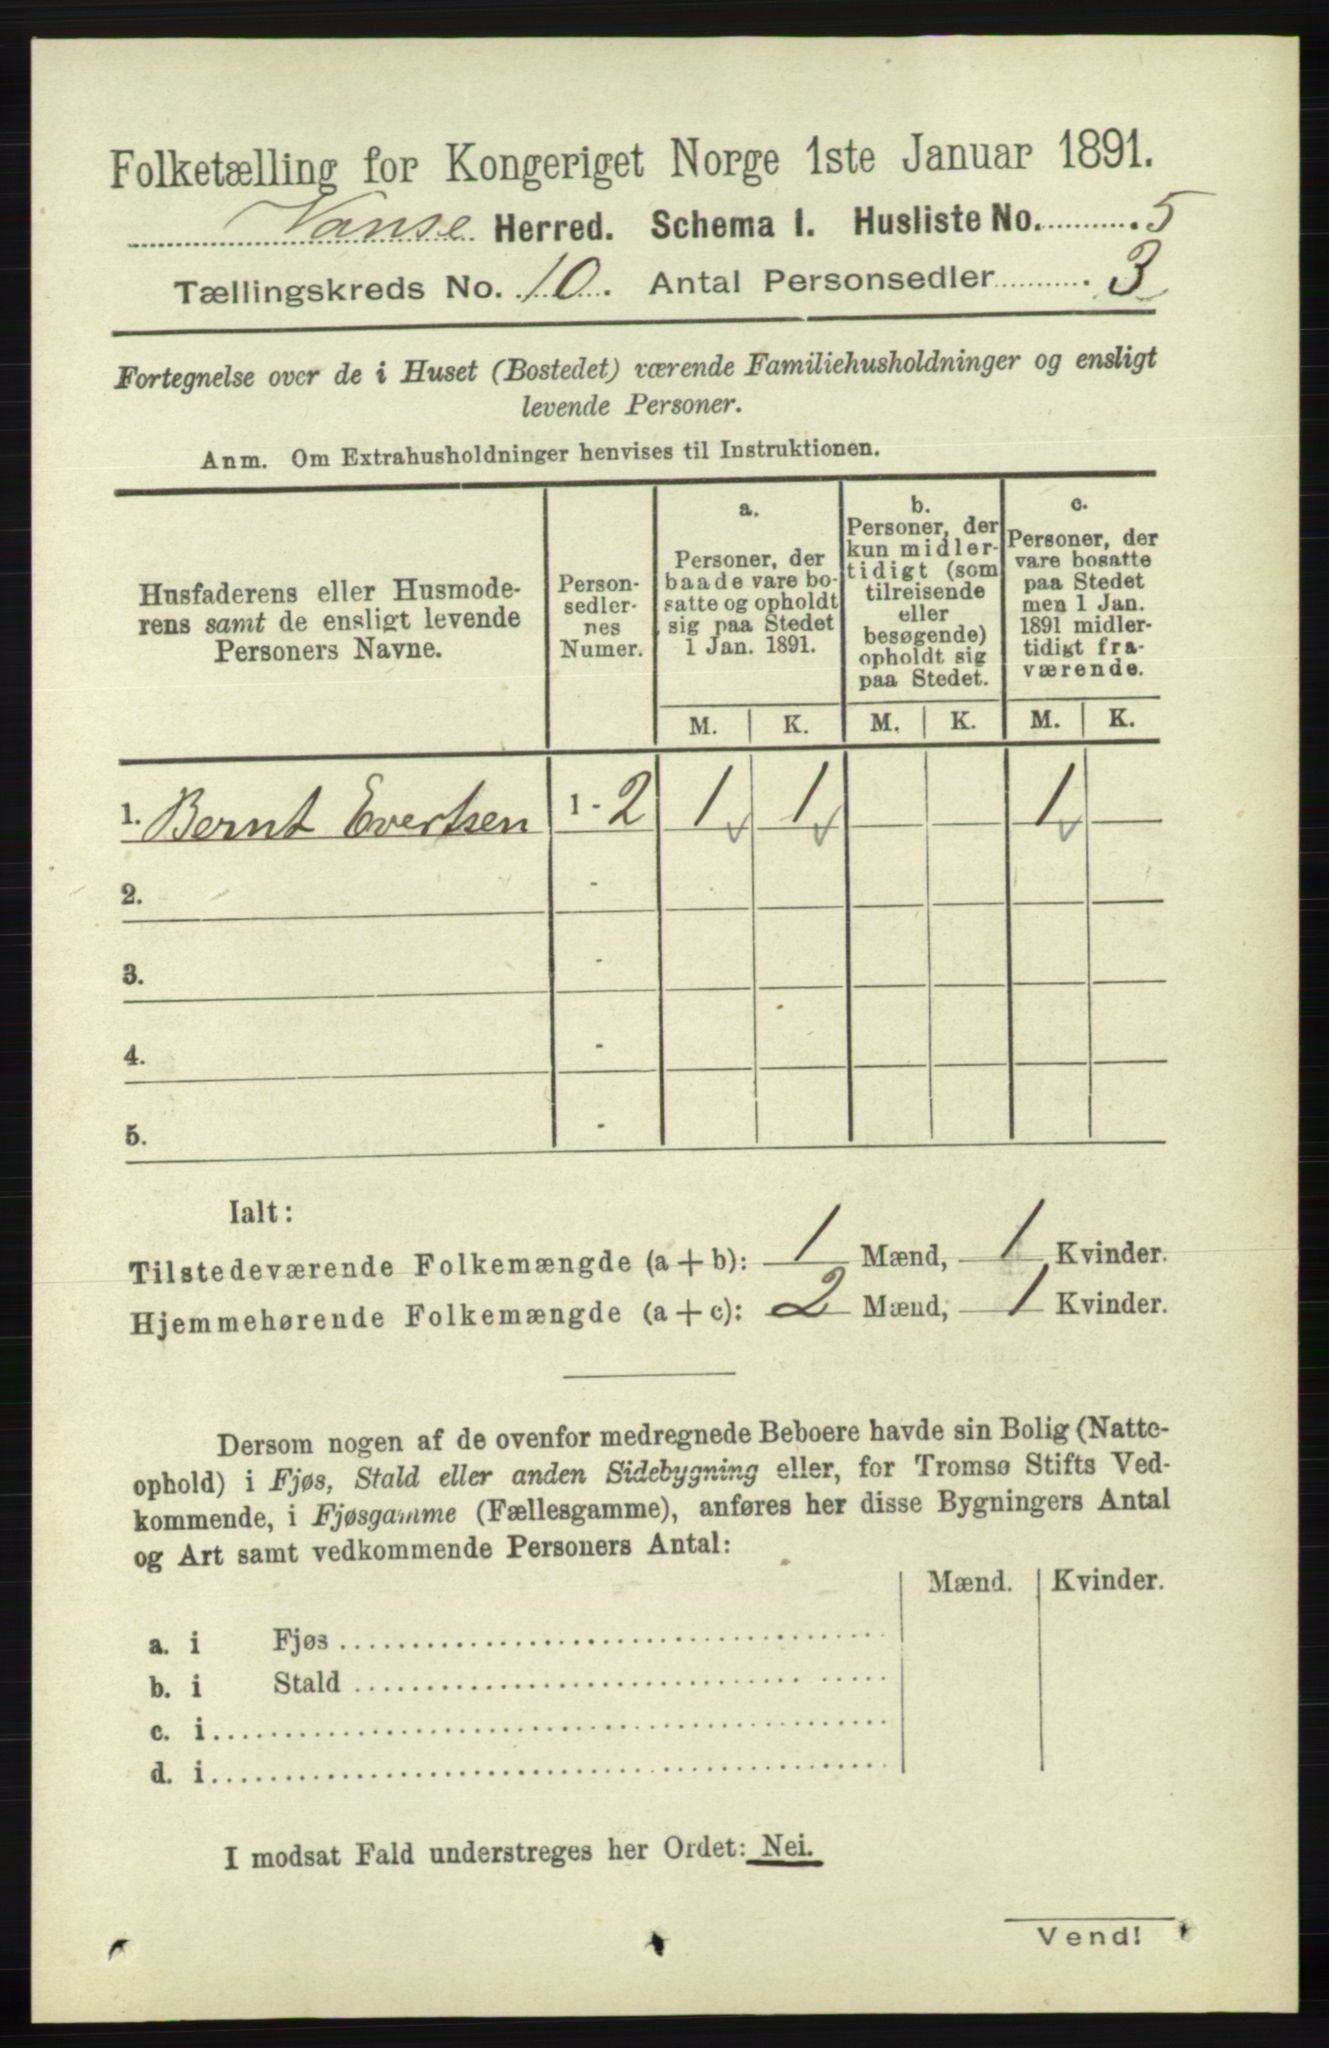 Folketælling for Kongeriget Norge 1ste Januar 1891.
Vanse Herred. Schema I. Husliste No. 5
Tællingskreds No. 10. Antal Personsedler 3
Fortegnelse over de i Huset (Bostedet) værende Familiehusholdninger og ensligt
levende Personer.
Anm. Om Extrahusholdninger henvises til Instruktionen.
Husfaderens eller Husmode-
rens samt de ensligt levende
Personers Navne.
Person-
sedler-
nes
Numer.
a.
Personer, der
baade vare bo-
satte og opholdt
sig paa Stedet
1 Jan. 1891.
b.
Personer, der
kun midler-
tidigt (som
tilreisende
eller
besøgende)
opholdt sig
paa Stedet.
c.
Personer, der
vare bosatte
paa Stedet
men 1 Jan.
1891 midler-
tidigt fra-
værende.
M. K. M. K. M. K.
1. Bernt Evertsen 1 - 2 1 1 1
2. -
3. -
4. -
5. -
Ialt:
Tilstedeværende Folkemængde (a + b): 1 Mænd, 1 Kvinder.
Hjemmehørende Folkemængde (a + c): 2 Mænd, 1 Kvinder.
Dersom nogen af de ovenfor medregnede Beboere havde sin Bolig (Natte-
ophold) i Fjøs, Stald eller anden Sidebygning eller, for Tromsø Stifts Ved-
kommende, i Fjøsgamme (Fællesgamme), anføres her disse Bygningers Antal
og Art samt vedkommende Personers Antal:
Mænd. Kvinder.
a. i Fjøs
b. i Stald
c. i
d. i
I modsat Fald understreges her Ordet: Nei.
Vend!